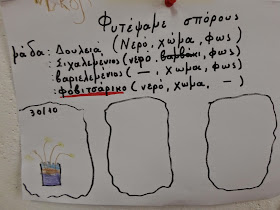 Φυτέψαμε σπόρους
μάδα: Δουλειά (Νερό, χώμα, φως)
: Σιχαλεμένιος (νερό, βαμβάκι, φως)
: βαριελεμένιος (—, χώμα, φως)
: φοβιτσάρικο (νερό, χώμα, —)
30/10